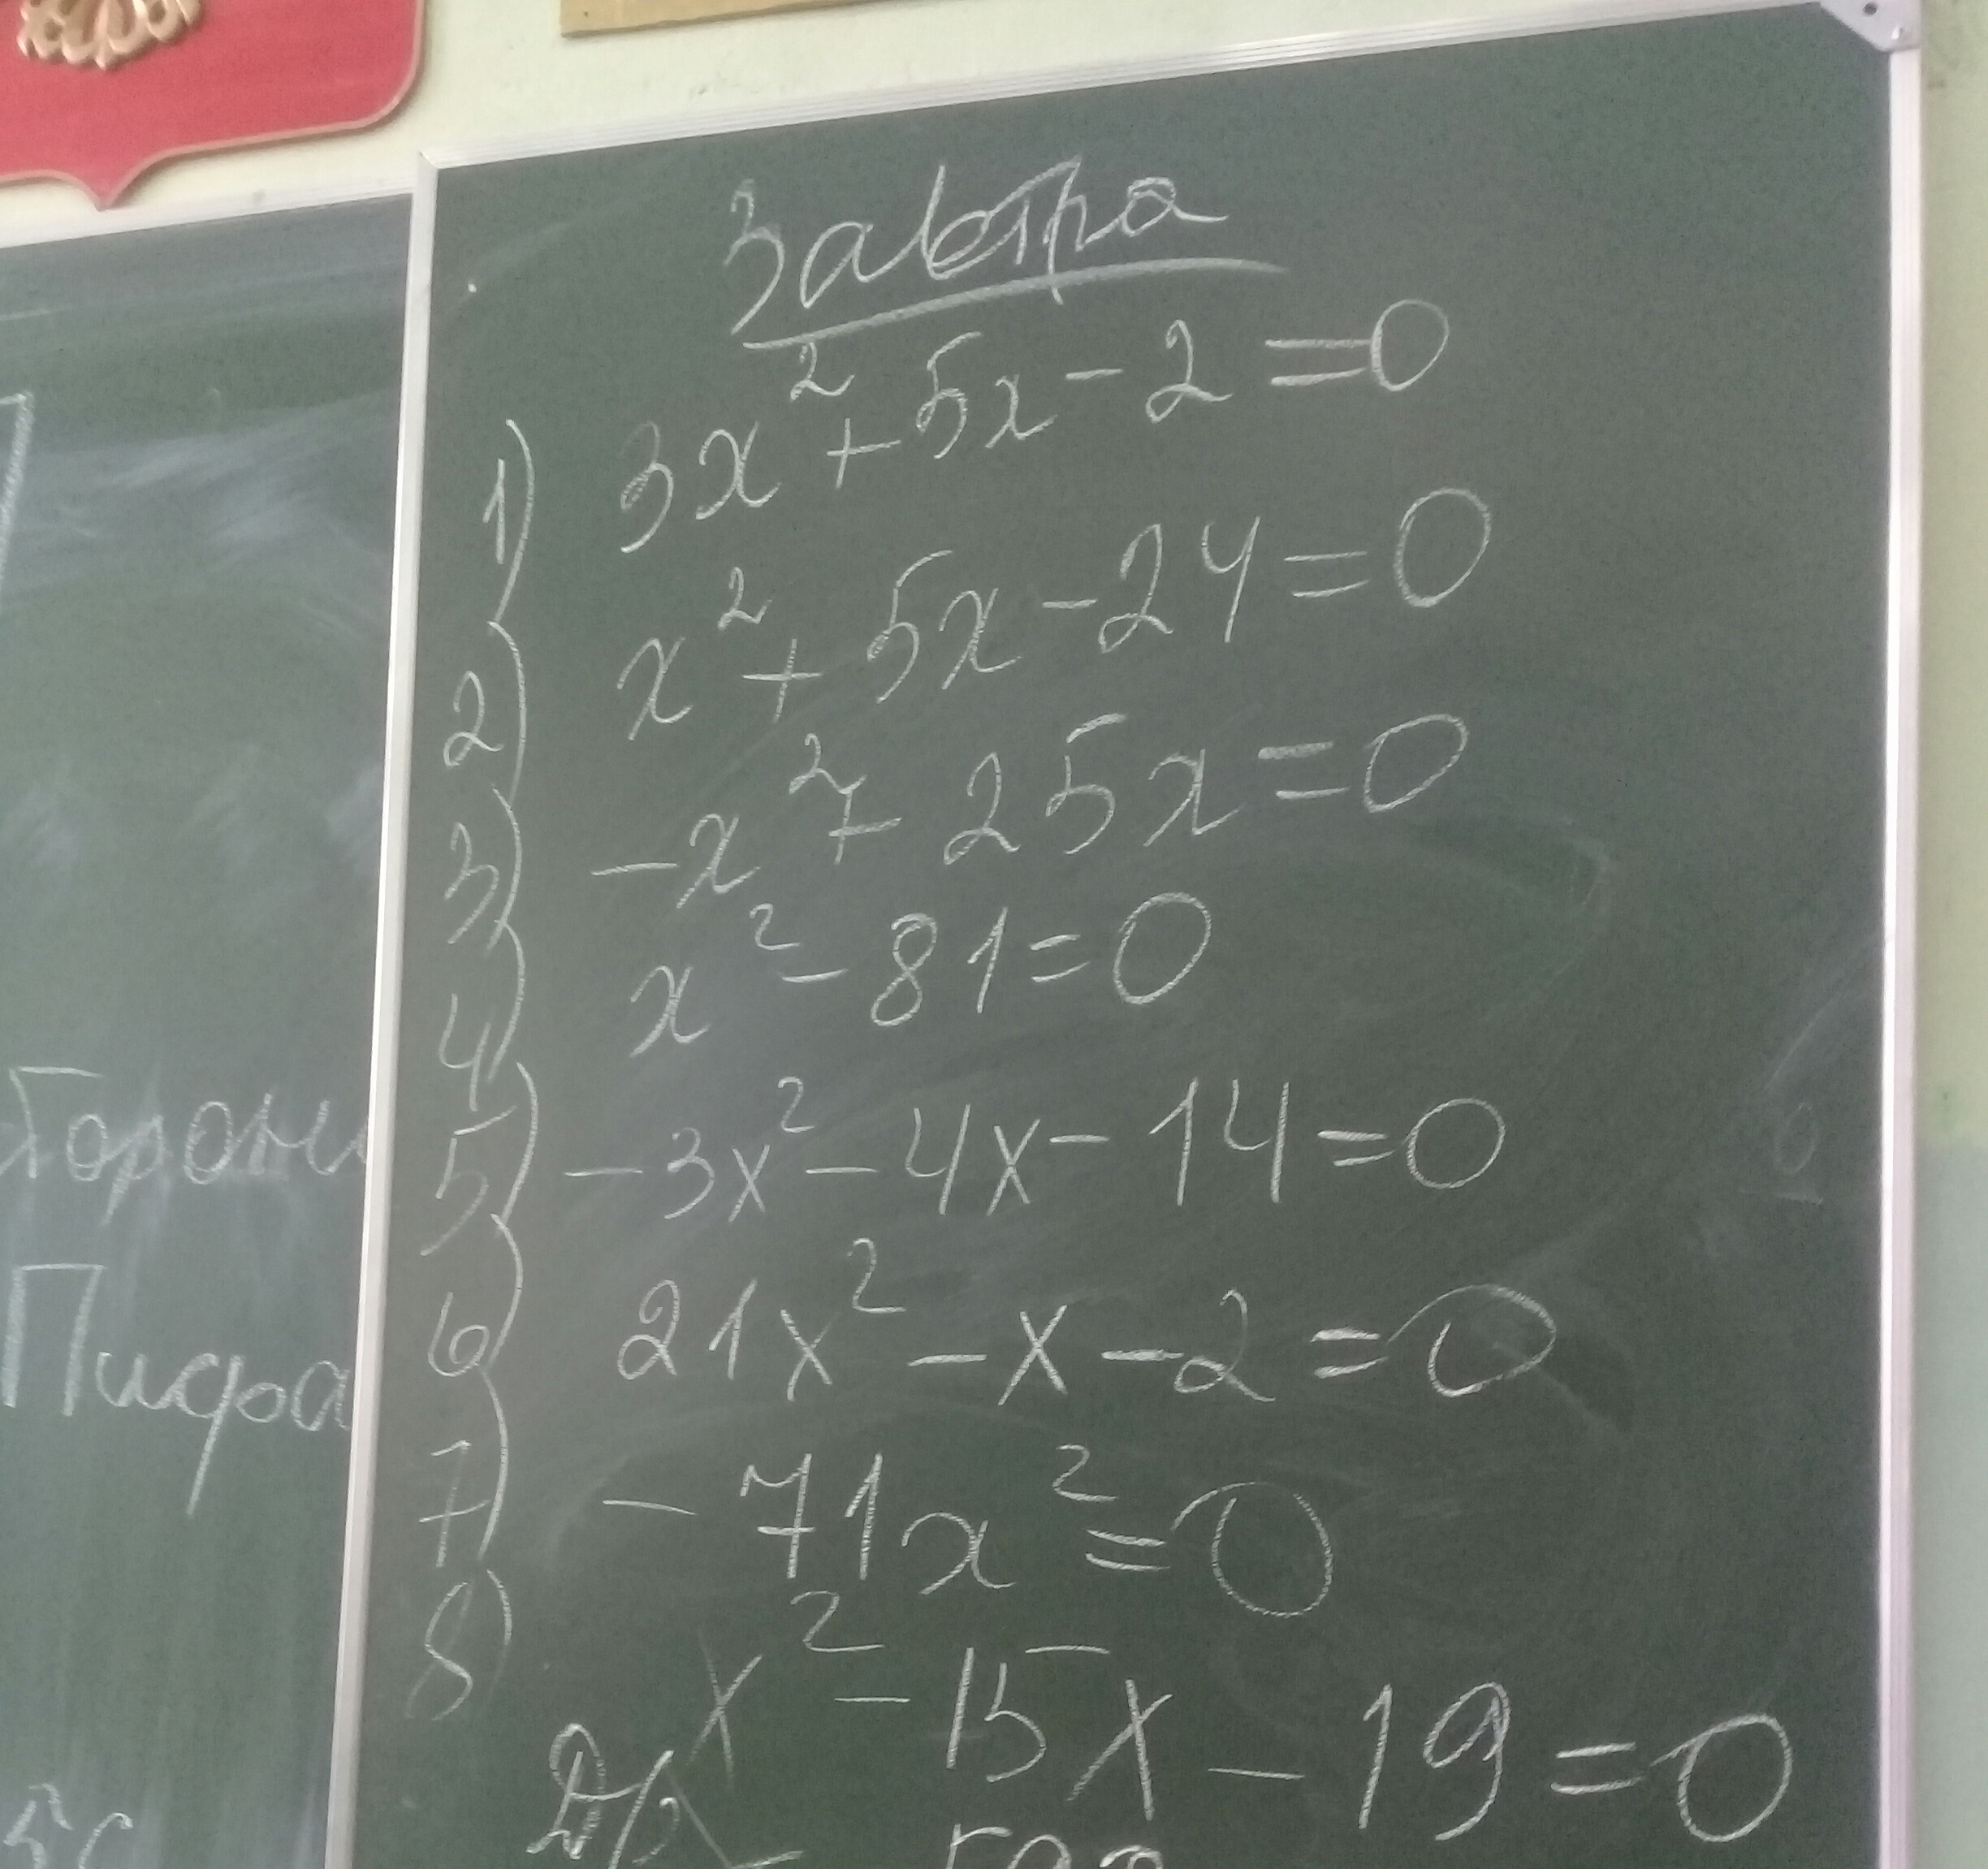 Завтра
1) 3x² + 5x - 2 = 0
2) x² + 5x - 24 = 0
3) -x² + 25x = 0
4) x² - 81 = 0
5) -3x² - 4x - 14 = 0
6) 21x² - x - 2 = 0
7) - 71x² = 0
8) x² - 15x - 19 = 0
Д/з
торони
Пифа